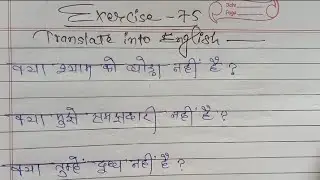 Exercise - 75
Date
Page
Translate into English —
क्या श्याम को घोड़ा नहीं है ?
क्या मुझे समझदारी नहीं है ?
क्या तुम्हें दुःख नहीं है ?